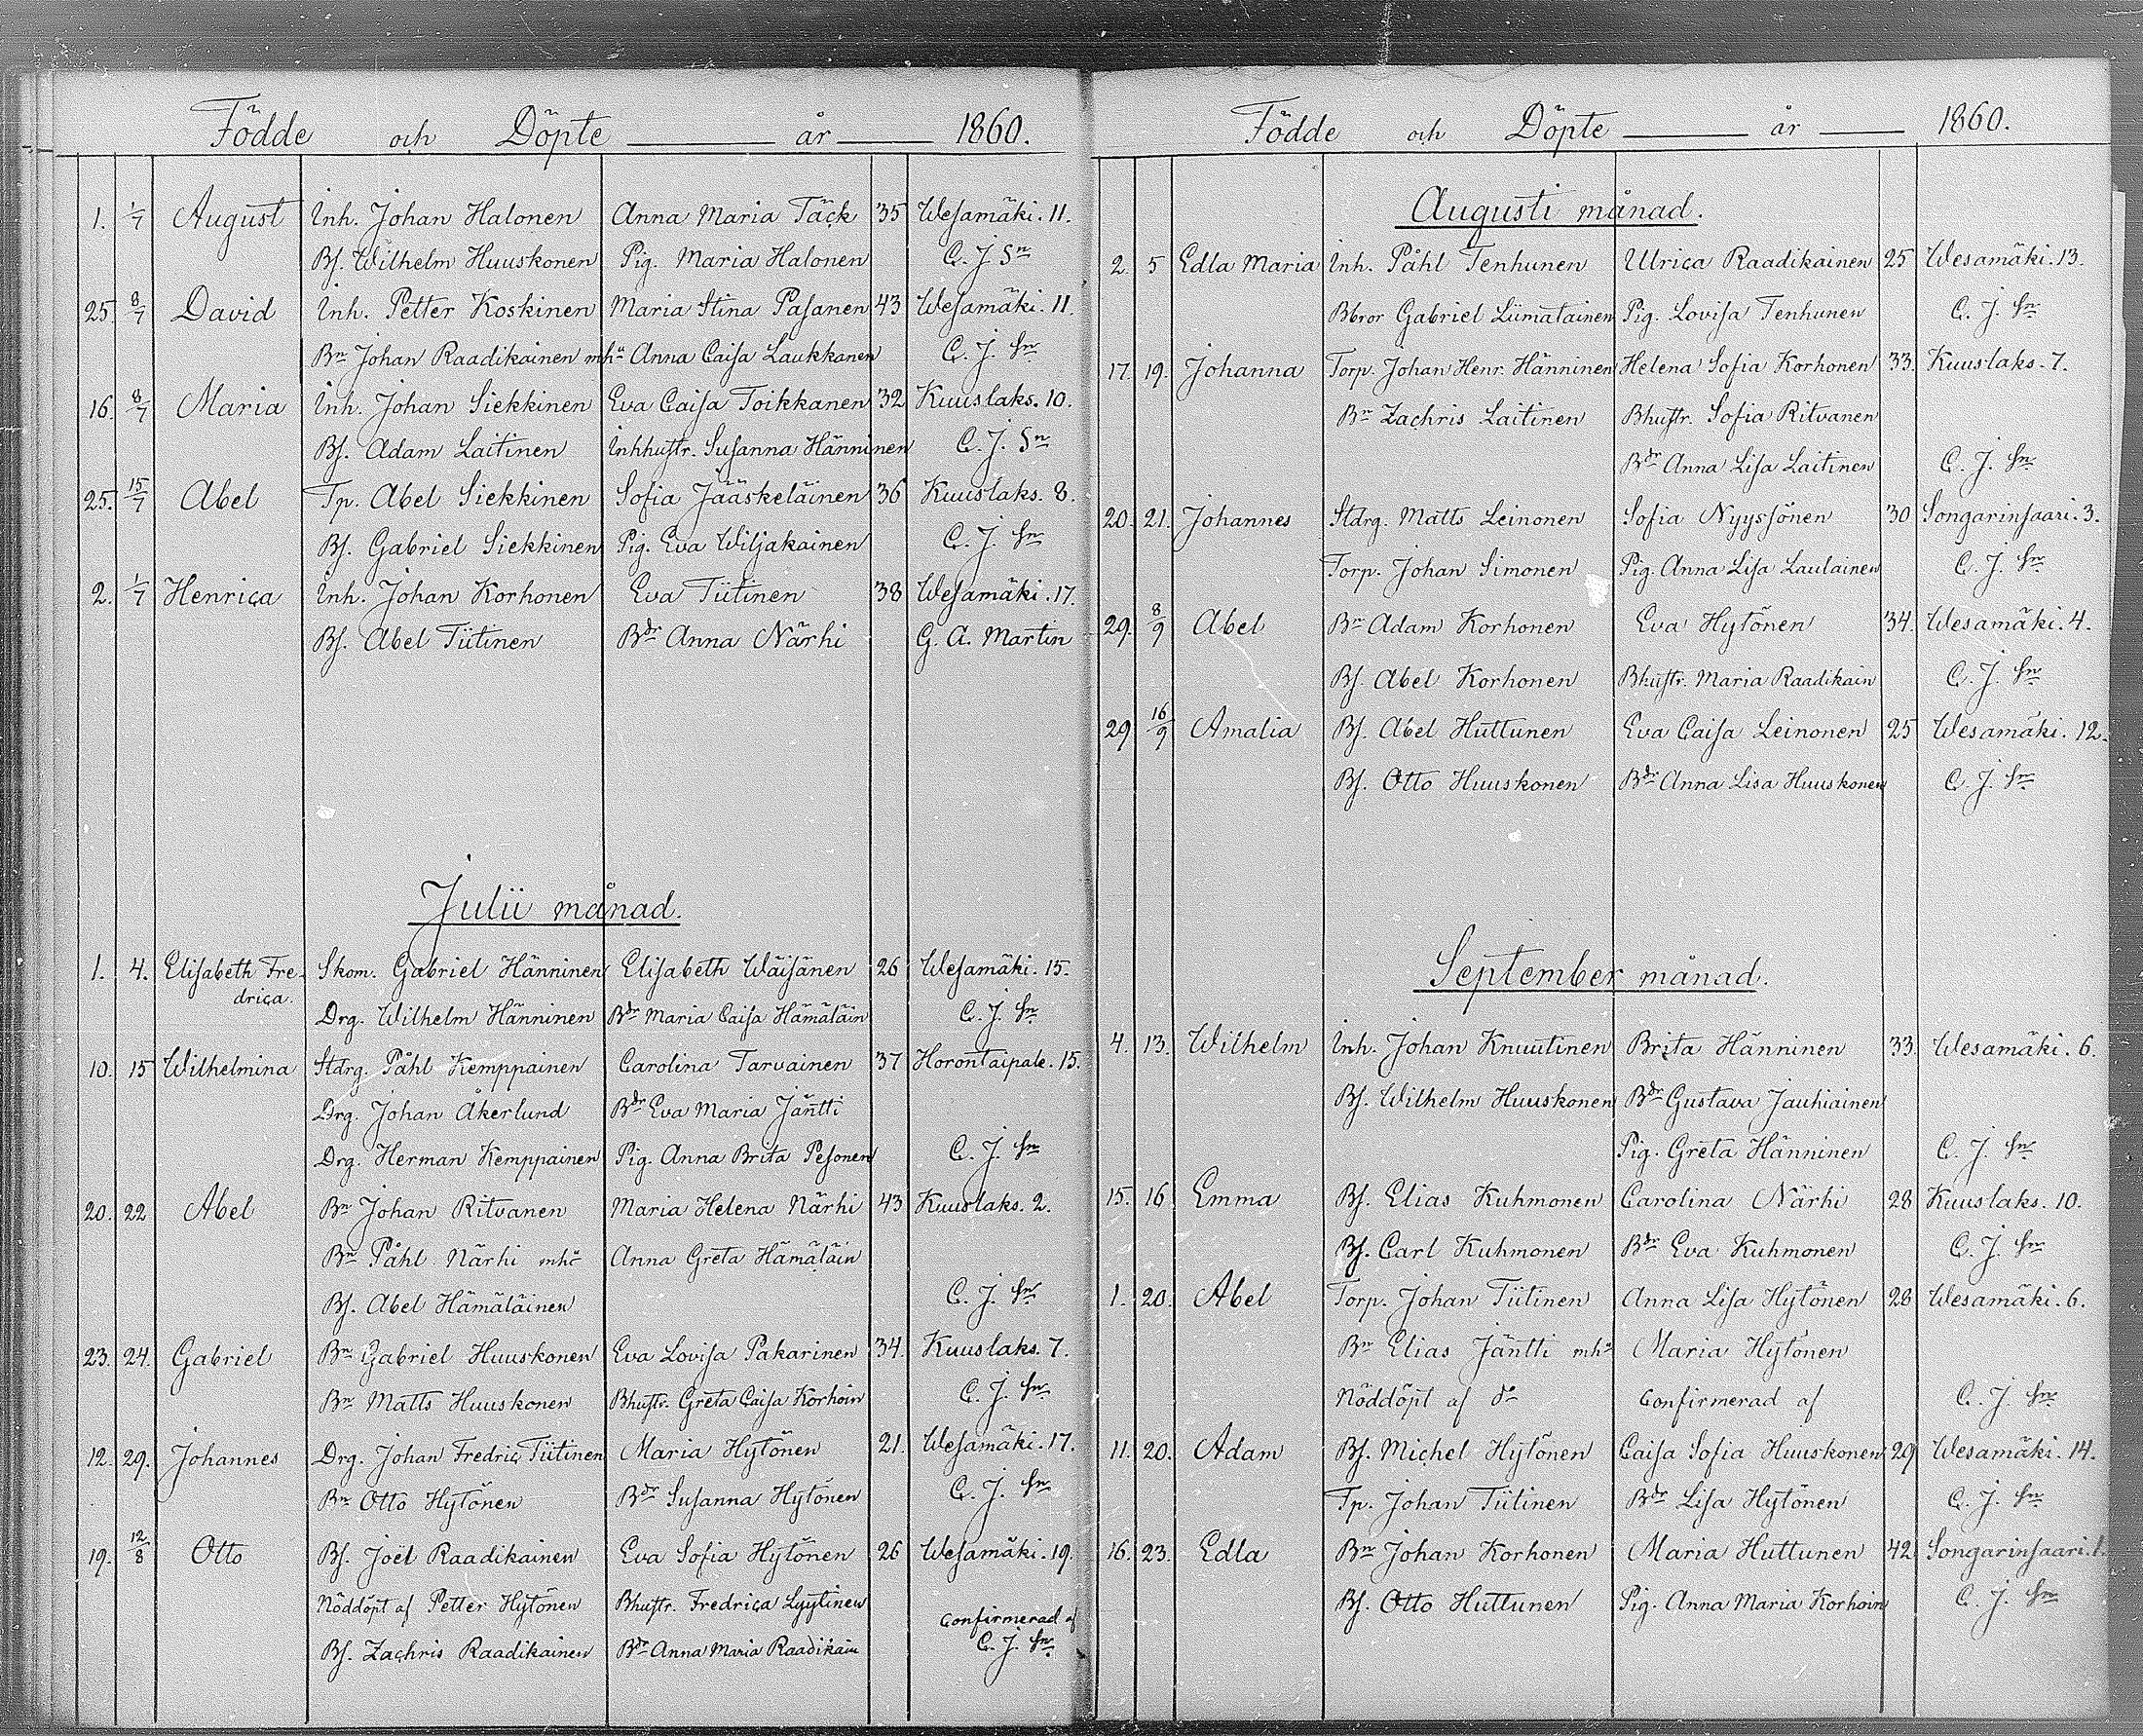 Födde och Döpte år 1860.
1. 1/7 August Inh. Johan Halonen Anna Maria Täck 35 Wesamäki. 11.
Bs. Wilhelm Huuskonen Pig. Maria Halonen C. J. Sn
25. 8/7 David Inh. Petter Koskinen Maria Stina Pasanen 43 Wesamäki. 11.
Bn Johan Raadikainen mha Anna Caisa Laukkanen C. J. Sn
16. 8/7 Maria Inh. Johan Siekkinen Eva Caisa Toikkanen 32 Kuuslaks. 10.
Bs. Adam Laitinen Inhhustr. Susanna Hänninen C. J. Sn
25. 15/7 Abel Tp. Abel Siekkinen Sofia Jääskeläinen 36 Kuuslaks. 8.
Bs. Gabriel Siekkinen Pig. Eva Wiljakainen C. J. Sn
2. 1/7 Henrica Inh. Johan Korhonen Eva Tiitinen 38 Wesamäki. 17.
Bs. Abel Tiitinen Bdr Anna Närhi G. A. Martin
Julii månad.
1. 4. Elisabeth Fre- Skom. Gabriel Hänninen Elisabeth Wäisänen 26 Wesamäki. 15.
drica. Drg. Wilhelm Hänninen Bdr Maria Caisa Hämäläin C. J. Sn
10. 15 Wilhelmina Stdrg. Påhl Kemppainen Carolina Tarvainen 37 Horontaipale. 15.
Drg. Johan Åkerlund Bdr Eva Maria Jäntti
Drg. Herman Kemppainen Pig. Anna Brita Pesonen C. J. Sn
20. 22 Abel Bn Johan Ritvanen Maria Helena Närhi 43 Kuuslaks. 2.
Bn Påhl Närhi mha Anna Greta Hämäläin
Bs. Abel Hämäläinen C. J. Sn
23. 24. Gabriel Bn Gabriel Huuskonen Eva Lovisa Pakarinen 34. Kuuslaks. 7.
Bn Matts Huuskonen Bhustr. Greta Caisa Korhoin C. J. Sn
12. 29. Johannes Drg. Johan Fredric Tiitinen Maria Hytönen 21. Wesamäki. 17.
Bn Otto Hytönen Bdr Susanna Hytönen C. J. Sn
19. 12/8 Otto Bs. Joël Raadikainen Eva Sofia Hytönen 26 Wesamäki. 19.
Nöddöpt af Petter Hytönen Bhustr. Fredrica Lyytinen Confirmerad af
Bs. Zachris Raadikainen Bdr Anna Maria Raadikain C. J. Sn
Födde och Döpte år 1860.
Augusti månad.
2. 5 Edla Maria Inh. Påhl Tenhunen Ulrica Raadikainen 25 Wesamäki. 13.
Bbror Gabriel Liimatainen Pig. Lovisa Tenhunen C. J. Sn
17. 19. Johanna Torp. Johan Henr. Hänninen Helena Sofia Korhonen 33. Kuuslaks. 7.
Bn Zachris Laitinen Bhustr. Sofia Ritvanen
Bdr Anna Lisa Laitinen C. J. Sn
20. 21. Johannes Stdrg. Matts Leinonen Sofia Nyyssönen 30 Songarinsaari. 3.
Torp. Johan Simonen Pig. Anna Lisa Laulainen C. J. Sn
29. 8/9 Abel Bn Adam Korhonen Eva Hytönen 34. Wesamäki. 4.
Bs. Abel Korhonen Bhustr. Maria Raadikain C. J. Sn
29 16/9 Amalia Bs. Abel Huttunen Eva Caisa Leinonen 25 Wesamäki. 12.
Bs. Otto Huuskonen Bdr Anna Lisa Huuskonen C. J. Sn
September månad.
4. 13. Wilhelm Inh. Johan Knuutinen Brita Hänninen 33. Wesamäki. 6.
Bs. Wilhelm Huuskonen Bdr Gustava Jauhiainen
Pig. Greta Hänninen C. J. Sn
15. 16 Emma Bs. Elias Kuhmonen Carolina Närhi 28 Kuuslaks. 10.
Bs. Carl Kuhmonen Bdr Eva Kuhmonen C. J. Sn
1. 20. Abel Torp. Johan Tiitinen Anna Lisa Hytönen 28 Wesamäki. 6.
Bn Elias Jäntti mha Maria Hytönen
Nöddöpt af do Confirmerad af C. J. Sn
11. 20. Adam Bs. Michel Hytönen Caisa Sofia Huuskonen 29 Wesamäki. 14.
Tp. Johan Tiitinen Bdr Lisa Hytönen C. J. Sn
16. 23. Edla Bn Johan Korhonen Maria Huttunen 42 Songarinsaari. 1.
Bs. Otto Huttunen Pig. Anna Maria Korhoin C. J. Sn